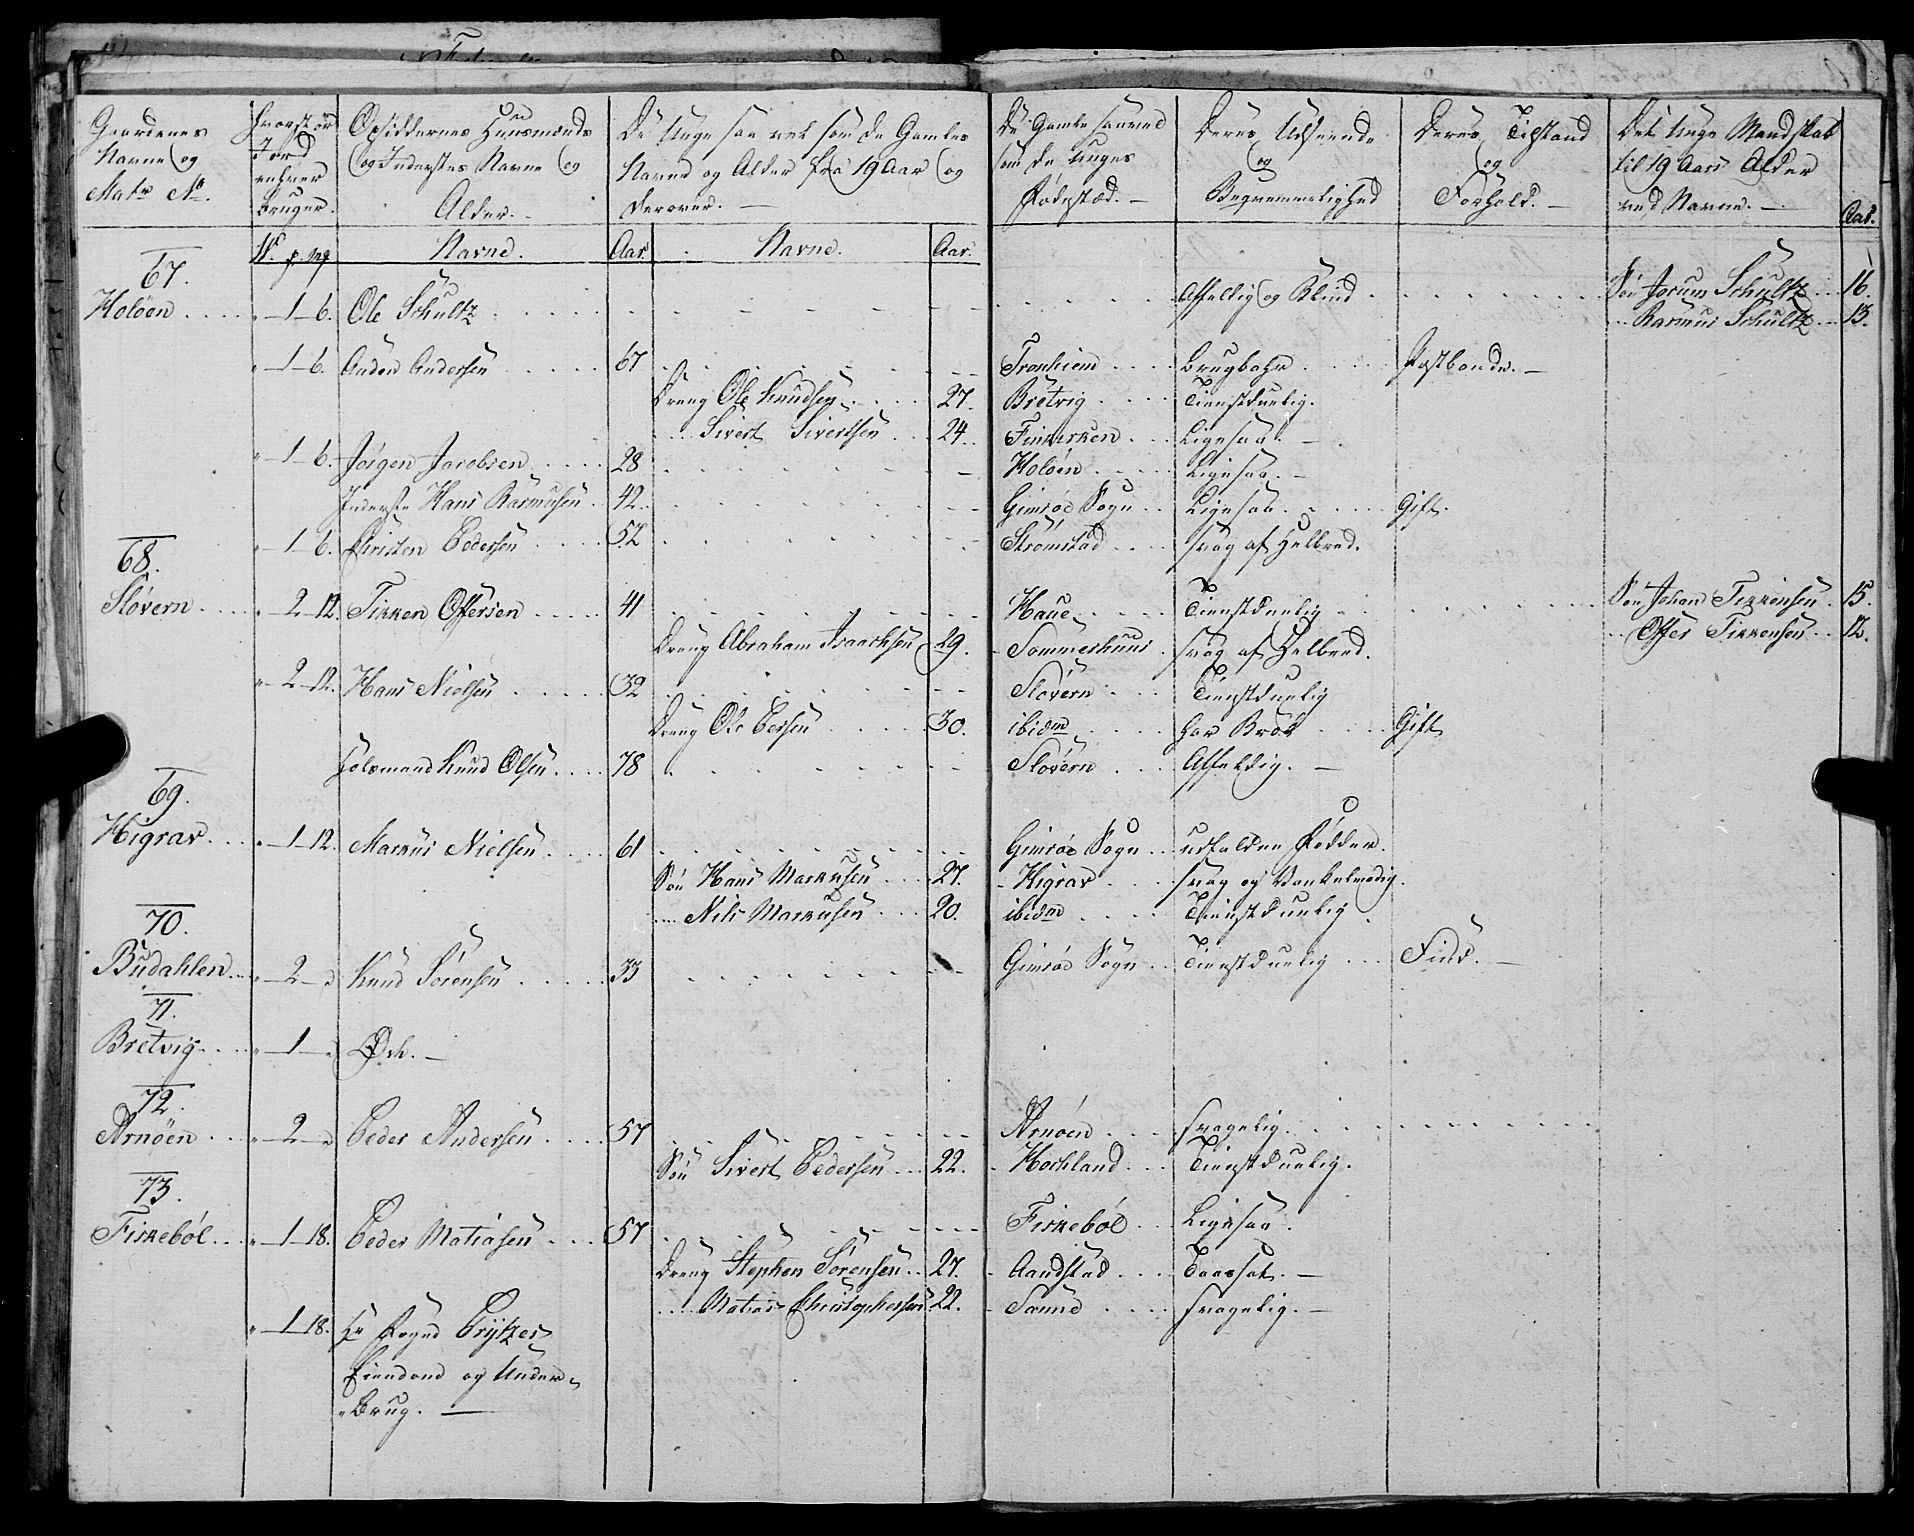 Gaardenes Navne og Matr No.
Hvorstor Jord enhver bruger.
Opsiddernes Huusmænds og Inderstes Navne og Alder.
De Unge saa vel som de Gamles Navne og Alder fra 19 Aar og derover.
De Gamle saavel som de Unges Fødestæd.
Deres Udseende og Beqvemmelighed
Deres Tilstand og Forhold.
Det Unge Mandskab til 19 Aars Alder ved Navne.
Aar.
W. p. mg
Navne.
Aar.
Navne.
Aar.
67.
Holöen "-1-6. Ole Schultz Affeldig og Blind Søn Jocum Schultz 16.
Rasmus Schultz 13.
"-1-6. Anders Andersen 67 Tronhiem brugbahr Postbonde.
Dreng Ole Knudsen 27. Bretvig Tienstduelig.
Sivert Sivertsen 24. Finkirken Ligesaa.
"-1-6. Jörgen Jacobsen 28 Holöen Ligesaa.
Inderste Hans Rasmusen 42 Gimsöe Sogn Ligesaa Gift.
"-1-6. Christen Pedersen 52 Strömstad svag af Helbred.
68.
Slövern "-2-12. Fikken Offersen 41 Haue Tienstduelig Søn Johan Fikkensen 15.
Dreng Abraham Isaachsen 29. Sommerhuus svag af Helbred. Offer Fikkensen 12.
"-2-12. Hans Nielsen 32 Slövern Tienstduelig
Dreng Ole Persen 30. ibidm har Brok Gift
Huusmand Knud Olsen 78 Slövern Affeldig.
69.
Higrav "-1-12. Markus Nielsen 61 Gimsöe Sogn udfalden Fødder.
Søn Hans Markusen 27. Higrav svag og Vankelmodig.
Nils Markusen 20. ibidm Tienstduelig
70.
Budahlen "-2-" Knud Sörensen 33 Gimsöe Sogn Tienstduelig Find.
71.
Bretvig "-1-" Öde.
72.
Arnöen "-2-" Peder Andersen 57 Arnöen svagelig.
Søn Sivert Pedersen 22. Hochland Tienstduelig.
73.
Fiskeböl "-1-18. Peder Matiasen 57 Fiskeböl Ligesaa.
Dreng Stephen Sörensen 27. Aandstad Taasset.
Matias Christophersen 22. Sund svagelig.
"-1-18. Hr Foged Prytzes
Eiendond og Under-
"Brug.